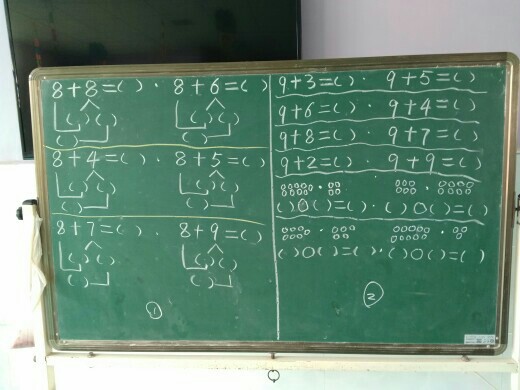 8+8=( ) · 8+6=( )
( ) ( ) ( ) ( )
( ) ( )
8+4=( ) · 8+5=( )
( ) ( ) ( ) ( )
( ) ( )
8+7=( ) · 8+9=( )
( ) ( ) ( ) ( )
( ) ( )
①
9+3=( ) · 9+5=( )
9+6=( ) · 9+4=( )
9+8=( ) · 9+7=( )
9+2=( ) · 9+9=( )
( )○( )=( ) · ( )○( )=( )
( )○( )=( ) · ( )○( )=( )
②